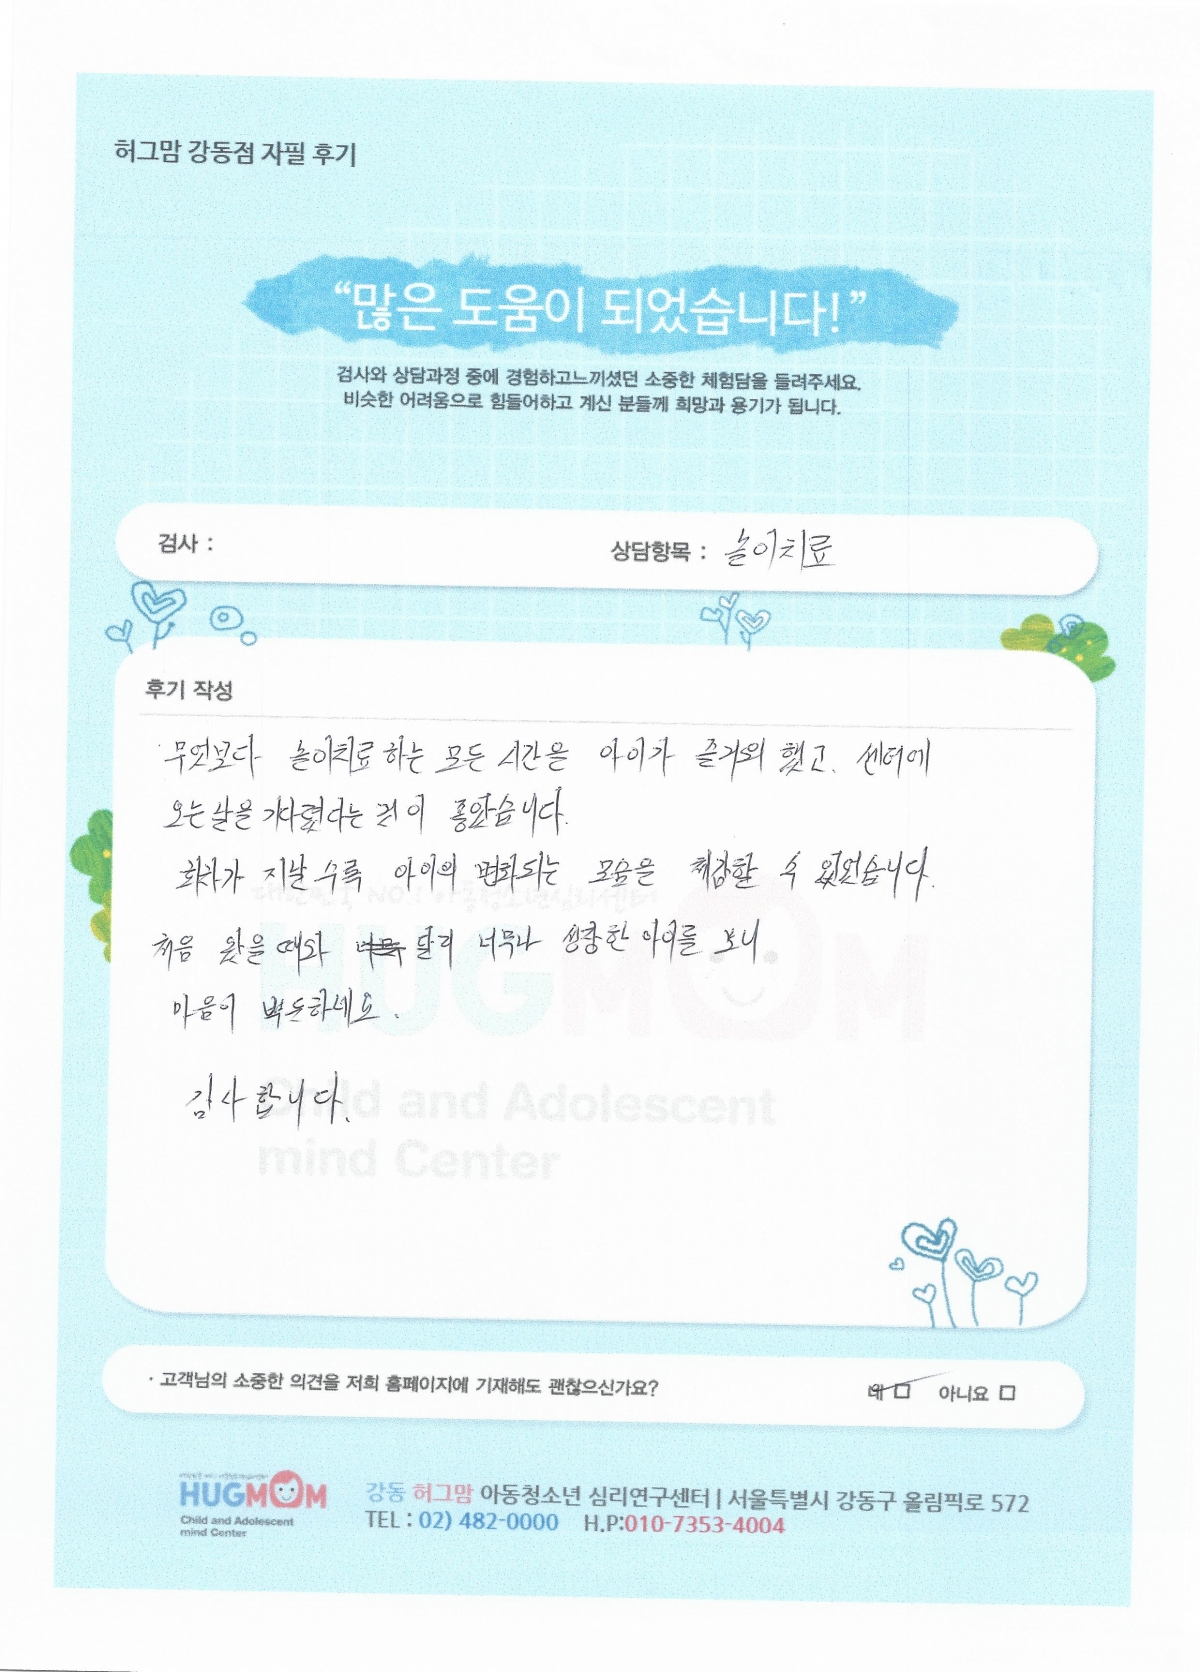 허그맘 강동점 자필 후기
“많은 도움이 되었습니다!”
검사와 상담과정 중에 경험하고느끼셨던 소중한 체험담을 들려주세요.
비슷한 어려움으로 힘들어하고 계신 분들께 희망과 용기가 됩니다.
검사 : 상담항목 : 놀이치료
후기 작성
무엇보다 놀이치료 하는 모든 시간을 아이가 즐거워 했고. 센터에
오는 날을 기다렸다는 것이 좋았습니다.
회차가 지날 수록 아이의 변화되는 모습을 체감할 수 있었습니다.
처음 왔을 때와 달리 너무나 성장한 아이를 보니
마음이 뿌듯하네요.
감사합니다.
대한민국 NO.1 아동청소년심리센터
HUGMOM
Child and Adolescent
mind Center
· 고객님의 소중한 의견을 저희 홈페이지에 기재해도 괜찮으신가요? 네 □ 아니요 □
HUGMOM
Child and Adolescent
mind Center
강동 허그맘 아동청소년 심리연구센터 | 서울특별시 강동구 올림픽로 572
TEL : 02) 482-0000 H.P:010-7353-4004